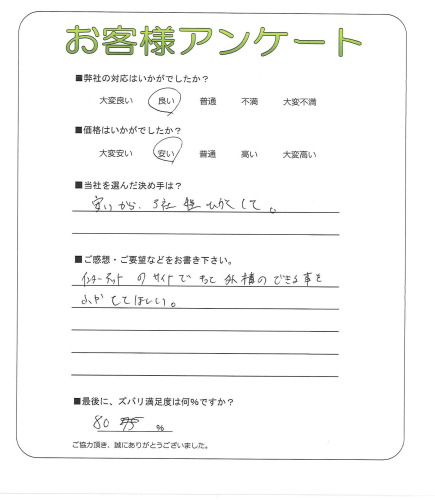 お客様アンケート
■弊社の対応はいかがでしたか？
大変良い 良い 普通 不満 大変不満
■価格はいかがでしたか？
大変安い 安い 普通 高い 大変高い
■当社を選んだ決め手は？
安いから、3社 してして。
■ご感想・ご要望などをお書き下さい。
インターネットのサイトでもっと外構のできる事を
ふやしてほしい。
■最後に、ズバリ満足度は何％ですか？
80 75 ％
ご協力頂き、誠にありがとうございました。